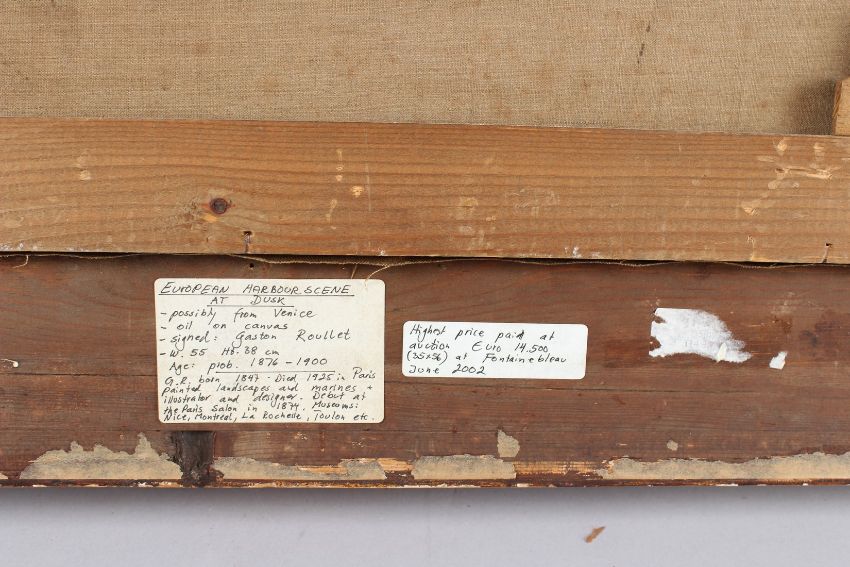 EUROPEAN HARBOUR SCENE
AT DUSK
- possibly from Venice
- oil on canvas
- signed: Gaston Roullet
- W. 55 Ht. 38 cm
Age: prob. 1876 - 1900
G.R. born 1847 - Died 1925 in Paris
painted landscapes and marines +
illustrator and designer. Debut at
the Paris Salon in 1874. Museums:
Nice, Montreal, La Rochelle, Toulon etc.
Highest price paid at
auction Euro 14.500
(35x56) at Fontainebleau
June 2002